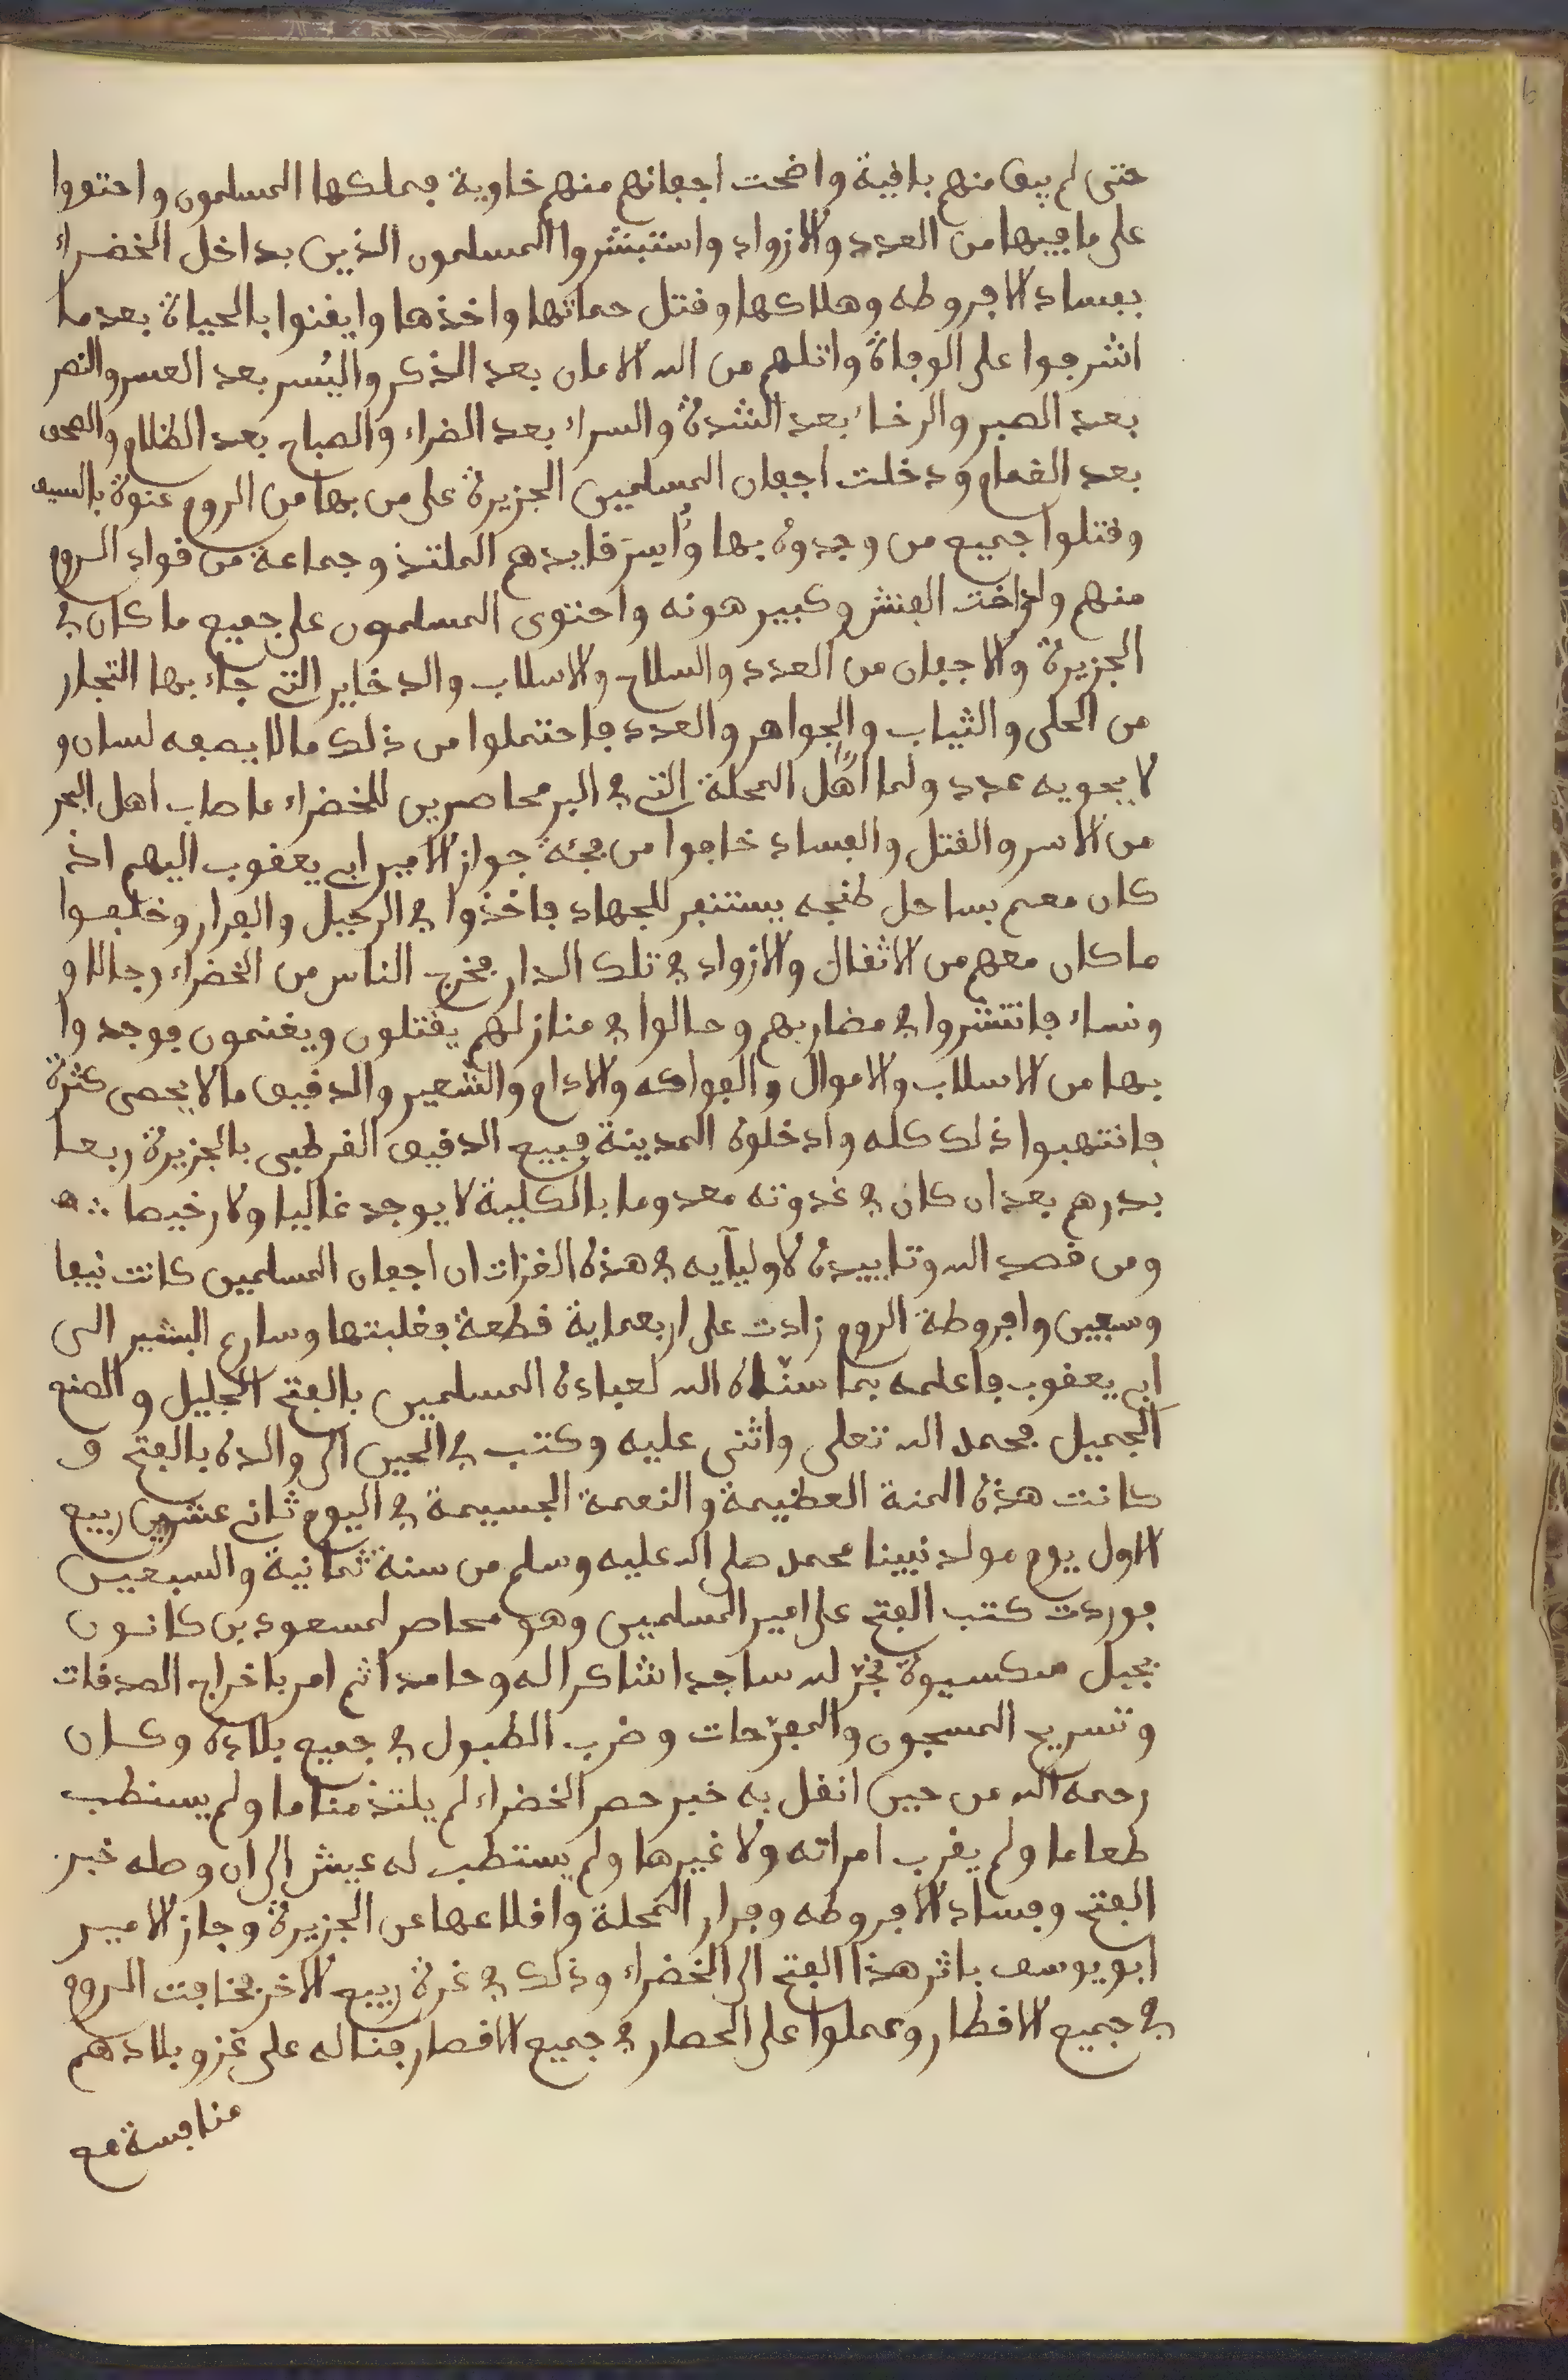 حتى لم يبق منهم باقية واضحت اجفانهم منهم خاوية فملكها المسلمون واحتووا
على ما فيها من العدد والازواد واستبشروا المسلمون الذين بداخل الخضراء
بفساد الافروطه وهلاكها وقتل حماتها واخذها وايقنوا بالحياة بعد ما
اشرفوا على الوفاة واتلهم من الله الامان بعد الذكر واليُسر بعد العسر والنصر
بعد الصبر والرخاء بعد الشدة والسراء بعد الضراء والصباح بعد الظلام والصحو
بعد الغمام ودخلت اجفان المسلمين الجزيرة على من بها من الروم عنوة بالسيف
وقتلوا جميع من وجدوه بها وأُسِرَ قايدهم الملتذ وجماعة من قواد الروم
منهم ولد اخت الفنش وكبير هونه واحتوى المسلمون على جميع ما كان في
الجزيرة والاجفان من العدد والسلاح والاسلاب والدخاير التي جاء بها التجار
من الحلى والثياب والجواهر والعدد فاحتملوا من ذلك مالا يصفه لسان و
لا يحويه عدد ولما اهل المحلة التي في البر محاصرين للخضراء ما صاب اهل البحر
من الاسر والقتل والفساد خافوا من فجئة جواز الامير ابي يعقوب اليهم اذ
كان معم بساحل طنجه يستنفر للجهاد فاخذوا في الرحيل والفرار وخلفوا
ما كان معهم من الاثقال والازواد في تلك الدار فخرج الناس من الخضراء رجالا و
ونساء فانتشروا في مضاربهم وجالوا في منازلهم يقتلون ويغنمون فوجدوا
بها من الاسلاب والاموال والفواكه والادام والشعير والدقيق ما لا يحصى كثرة
فانتهبوا ذلك كله وادخلوه المدينة فبيع الدقيق القرطبي بالجزيرة ربعا
بدرهم بعد ان كان في غدوته معدوما بالكلية لا يوجد غاليا ولا رخيصا
ومن قصد الله وتاييده لاوليآيه في هذه الغزات ان اجفان المسلمين كانت نيفا
وسبعين وافروطة الروم زادت على اربعماية قطعة فغلبتها وسارع البشير الى
ابي يعقوب فاعلمه بما سنّاه الله لعباده المسلمين بالفتح الجليل والصنع
الجميل فحمد الله تعلى واثنى عليه وكتب في الحين الى والده بالفتح و
كانت هذه المنة العظيمة والنعمة الجسيمة في اليوم ثاني عشر من ربيع
الاول يوم مولد نبينا محمد صلى الله عليه وسلم من سنة ثمانية والسبعين
فوردت كتب الفتح على امير المسلمين وهو محاصر لمسعود بن كانون
بجبل سكسيوة فخرّ لله ساجدا شاكرا له وحامدا ثم امر باخراج الصدقات
وتسريح المسجون والمفرّحات وضرب الطبول في جميع بلاده وكان
رحمه الله من حين اتصل به خبر حصر الخضراء لم يلتذ مناما ولم يستطب
طعاما ولم يقرب امراته ولا غيرها ولم يستطب له عيش الى ان وصله خبر
الفتح وفساد الافروطه وفرار المحلة واقلاعها عن الجزيرة وجاز الامير
ابو يوسف باثر هذا الفتح الى الخضراء وذلك في غرة ربيع الاخر فخافت الروم
في جميع الاقطار وعملوا على الحصار في جميع الاقصار فناله على غزو بلادهم
منافسة مع